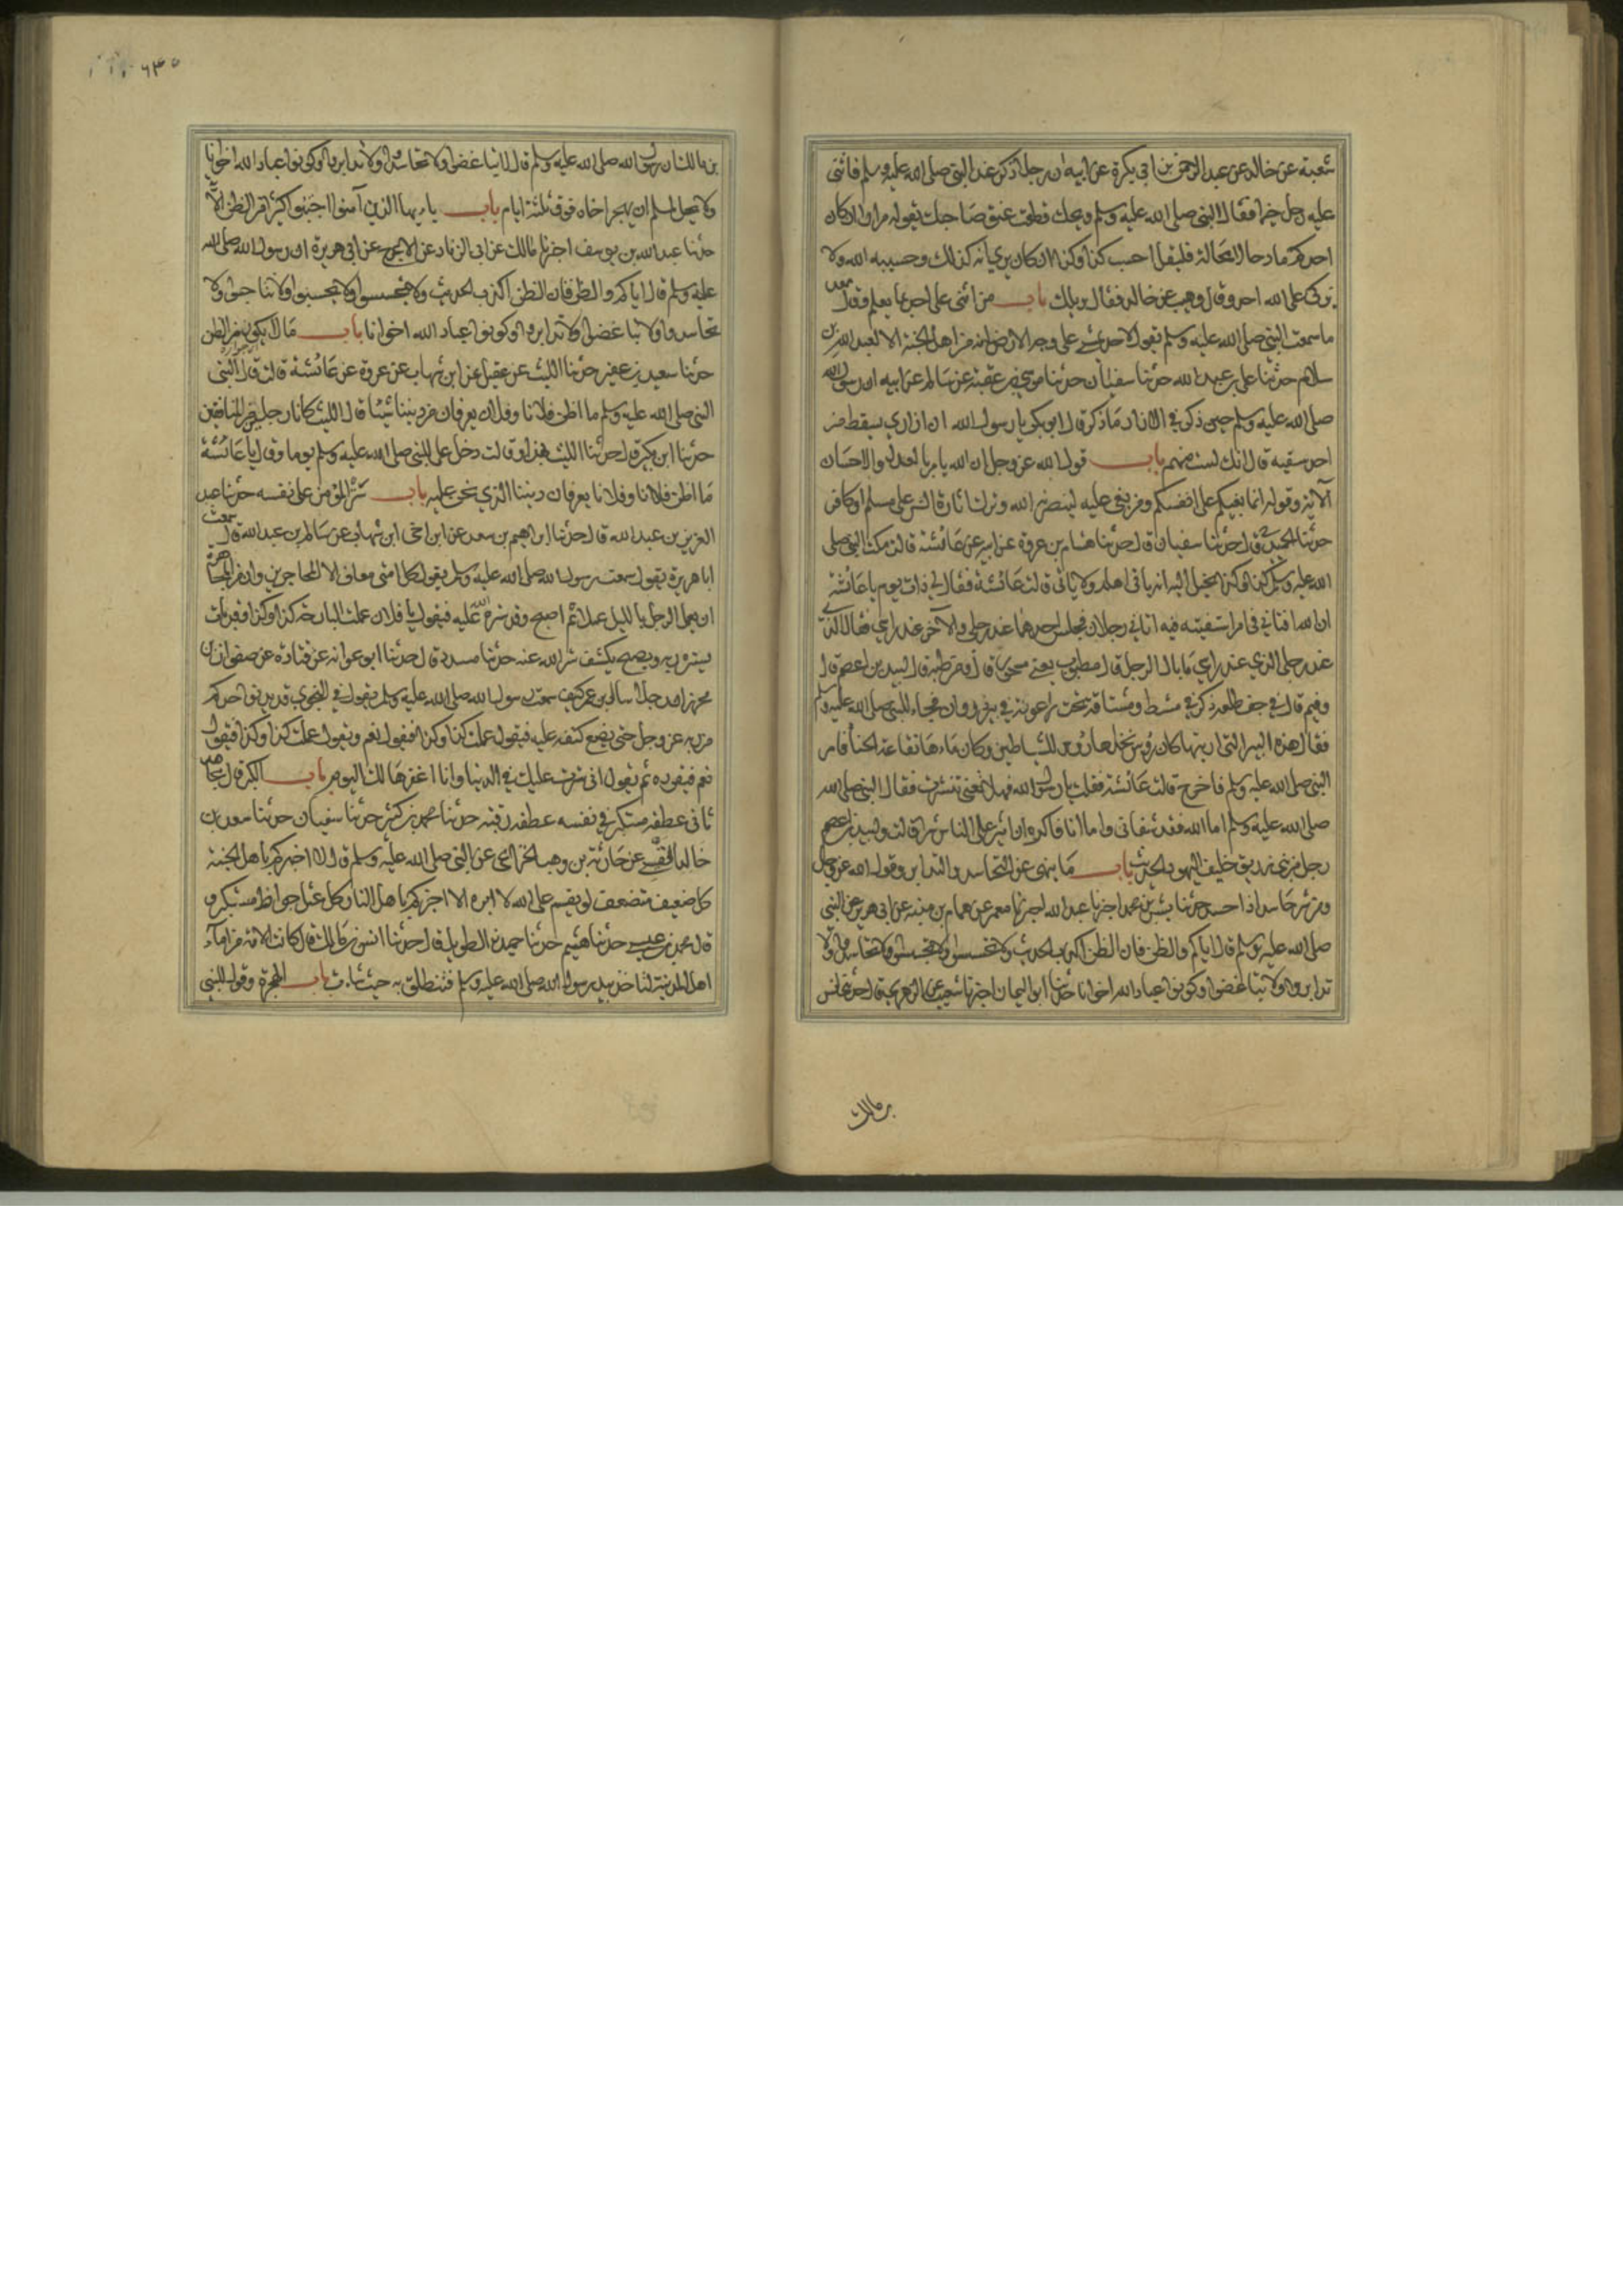 شعبة عن خالد عن عبد الرحمن بن ابى بكرة عن ابيه ان رجلا ذكر عند النبى صلى الله عليه وسلم فاثنى
عليه رجل خيرا فقال النبى صلى الله عليه وسلم ويحك قطعت عنق صاحبك يقوله مرارا ان كان
احدكم مادحا لا محالة فليقل احسب كذا وكذا ان كان يرى انه كذلك وحسيبه الله ولا
يزكى على الله احد وقال وهيب عن خالد فقال ويلك باب من اثنى على اخيه بما يعلم وقال سعد
ما سمعت النبى صلى الله عليه وسلم يقول لاحد يمشى على وجه الارض انه من اهل الجنة الا لعبد الله بن
سلام حدثنا على بن عبد الله حدثنا سفيان حدثنا موسى بن عقبة عن سالم عن ابيه ان رسول الله
صلى الله عليه وسلم حين ذكر فى الازار ما ذكر قال ابو بكر يا رسول الله ان ازارى يسقط من
احد شقيه قال انك لست منهم باب قول الله عز وجل ان الله يامر بالعدل والاحسان
الآية وقوله انما بغيكم على انفسكم ومن بغى عليه لينصرنه الله وترك اثارة الشر على مسلم او كافر
حدثنا الحميدى قال حدثنا سفيان قال حدثنا هشام بن عروة عن ابيه عن عائشة قالت مكث النبى صلى
الله عليه وسلم كذا وكذا يخيل اليه انه ياتى اهله ولا ياتى قالت عائشة فقال لى ذات يوم يا عائشة
ان الله افتانى فى امر استفتيته فيه اتانى رجلان فجلس احدهما عند رجلى والآخر عند راسى فقال الذى
عند رجلى للذى عند راسى ما بال الرجل قال مطبوب يعنى مسحورا قال ومن طبه قال لبيد بن اعصم قال
وفيم قال فى جف طلعة ذكر فى مشط ومشاقة تحت راعوفة فى بئر ذروان فجاء النبى صلى الله عليه وسلم
فقال هذه البئر التى اريتها كان رؤس نخلها رؤس الشياطين وكان ماءها نقاعة الحنا فامر
النبى صلى الله عليه وسلم فاخرج قالت عائشة فقلت يا رسول الله فهلا تعنى تنشرت فقال النبى صلى الله
صلى الله عليه وسلم اما الله فقد شفانى واما انا فاكره ان اثير على الناس شرا قالت ولبيد بن اعصم
رجل من بنى زريق حليف اليهود الحديث باب ما ينهى عن التحاسد والتدابر وقول الله عز وجل
ومن شر حاسد اذا حسد حدثنا بشر بن محمد اخبرنا عبد الله اخبرنا معمر عن همام بن منبه عن ابى هريرة عن النبى
صلى الله عليه وسلم قال اياكم والظن فان الظن اكذب الحديث ولا تحسسوا ولا تجسسوا ولا تحاسدوا ولا
تدابروا ولا تباغضوا وكونوا عباد الله اخوانا حدثنا ابو اليمان اخبرنا شعيب عن الزهرى قال حدثنى انس
بن مالك
بن مالك ان رسول الله صلى الله عليه وسلم قال لا تباغضوا ولا تحاسدوا ولا تدابروا وكونوا عباد الله اخوانا
ولا يحل لمسلم ان يهجر اخاه فوق ثلثة ايام باب يا ايها الذين آمنوا اجتنبوا كثيرا من الظن الآية
حدثنا عبد الله بن يوسف اخبرنا مالك عن ابى الزناد عن الاعرج عن ابى هريرة ان رسول الله صلى الله
عليه وسلم قال اياكم والظن فان الظن اكذب الحديث ولا تجسسوا ولا تحسسوا ولا تناجشوا ولا
تحاسدوا ولا تباغضوا ولا تدابروا وكونوا عباد الله اخوانا باب ما لا يكون من الظن
حدثنا سعيد بن عفير حدثنا الليث عن عقيل عن ابن شهاب عن عروة عن عائشة قالت قال النبى
النبى صلى الله عليه وسلم ما اظن فلانا وفلانا يعرفان من ديننا شيئا قال الليث كانا رجلين من المنافقين
حدثنا ابن بكير قال حدثنا الليث بهذا وقالت دخل على النبى صلى الله عليه وسلم يوما وقال يا عائشة
ما اظن فلانا وفلانا يعرفان ديننا الذى نحن عليه باب ستر المؤمن على نفسه حدثنا عبد
العزيز بن عبد الله قال حدثنا ابراهيم بن سعد عن ابن اخى ابن شهاب عن سالم بن عبد الله قال سمعت
ابا هريرة يقول سمعت رسول الله صلى الله عليه وسلم يقول كل امتى معافى الا المجاهرين وان من المجاهرة
ان يعمل الرجل بالليل عملا ثم اصبح وقد ستره الله عليه فيقول يا فلان عملت البارحة كذا وكذا وقد بات
يستره ربه ويصبح يكشف ستر الله عنه حدثنا مسدد قال حدثنا ابو عوانة عن قتادة عن صفوان بن
محرز ان رجلا سال ابن عمر كيف سمعت رسول الله صلى الله عليه وسلم يقول فى النجوى قال يدنو احدكم
من ربه عز وجل حتى يضع كنفه عليه فيقول عملت كذا وكذا فيقول نعم ويقول عملت كذا وكذا فيقول
نعم فيقرره ثم يقول انى سترت عليك فى الدنيا وانا اغفرها لك اليوم باب الكبر قال مجاهد
ثانى عطفه مستكبر فى نفسه عطفه رقبته حدثنا محمد بن كثير حدثنا سفيان حدثنا معبد بن
خالد القيسى عن حارثة بن وهب الخزاعى عن النبى صلى الله عليه وسلم قال الا اخبركم باهل الجنة
كل ضعيف متضعف لو يقسم على الله لابره الا اخبركم باهل النار كل عتل جواظ مستكبر و
قال محمد بن عيسى حدثنا هشيم حدثنا حميد الطويل قال حدثنا انس بن مالك قال كانت الامة من اماء
اهل المدينة لتاخذ بيد رسول الله صلى الله عليه وسلم فتنطلق به حيث شاءت باب الهجرة وقول النبى